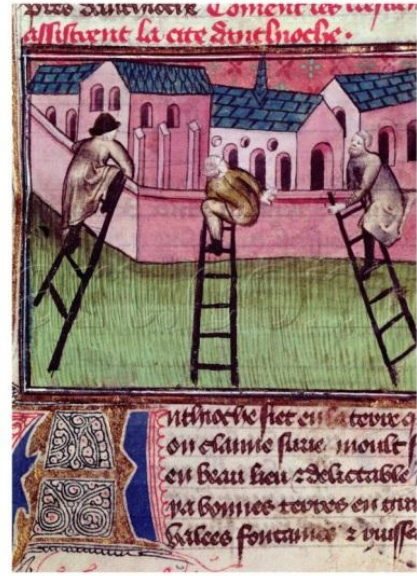 pres danthioche Coment les
assistrent la cite danthioche.
nthioche siet en la terre q
on claime surie. moult
en beau lieu ⁊ delictable
ya bonnes terres en
fontainnes ⁊